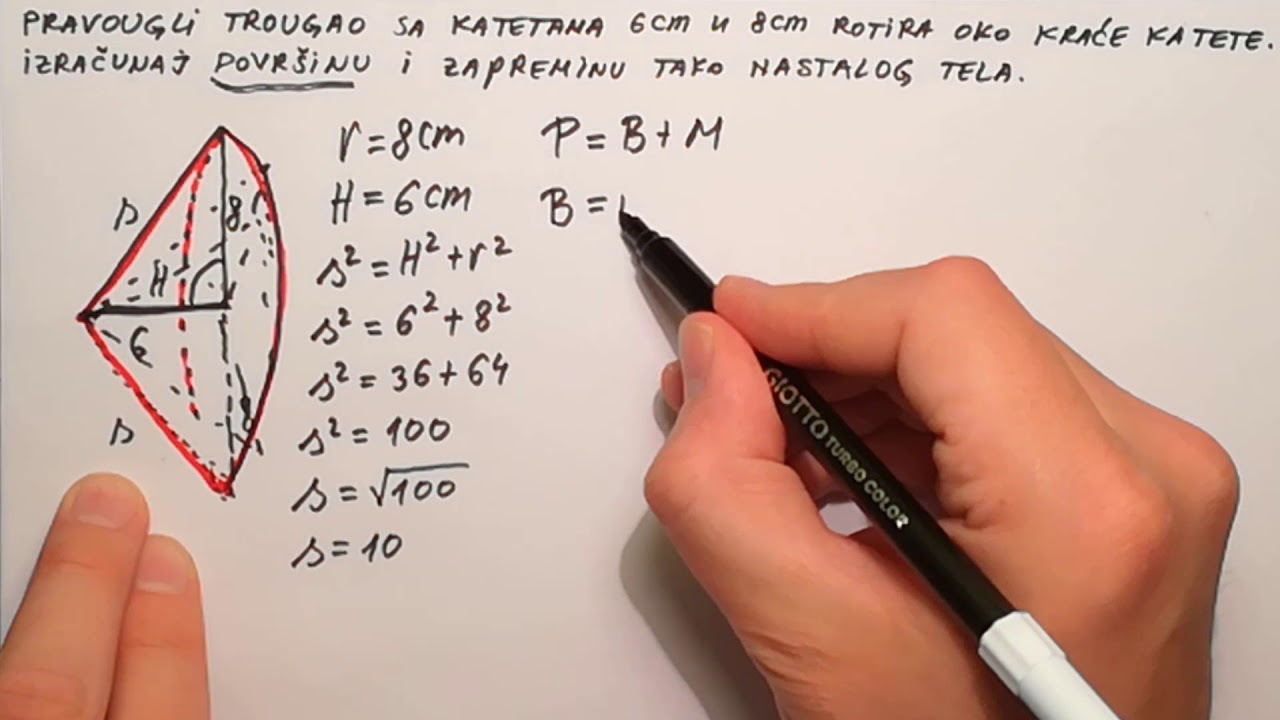 PRAVOUGLI TROUGAO SA KATETANA 6cm u 8cm ROTIRA OKO KRAĆE KATETE.
IZRAČUNAJ POVRŠINU i ZAPREMINU TAKO NASTALOG TELA.
r=8cm
H=6cm
s²=H²+r²
s²=6²+8²
s²=36+64
s²=100
s=√100
s=10
P=B+M
B=
s
8
H
6
s
GIOTTO TURBO COLOR